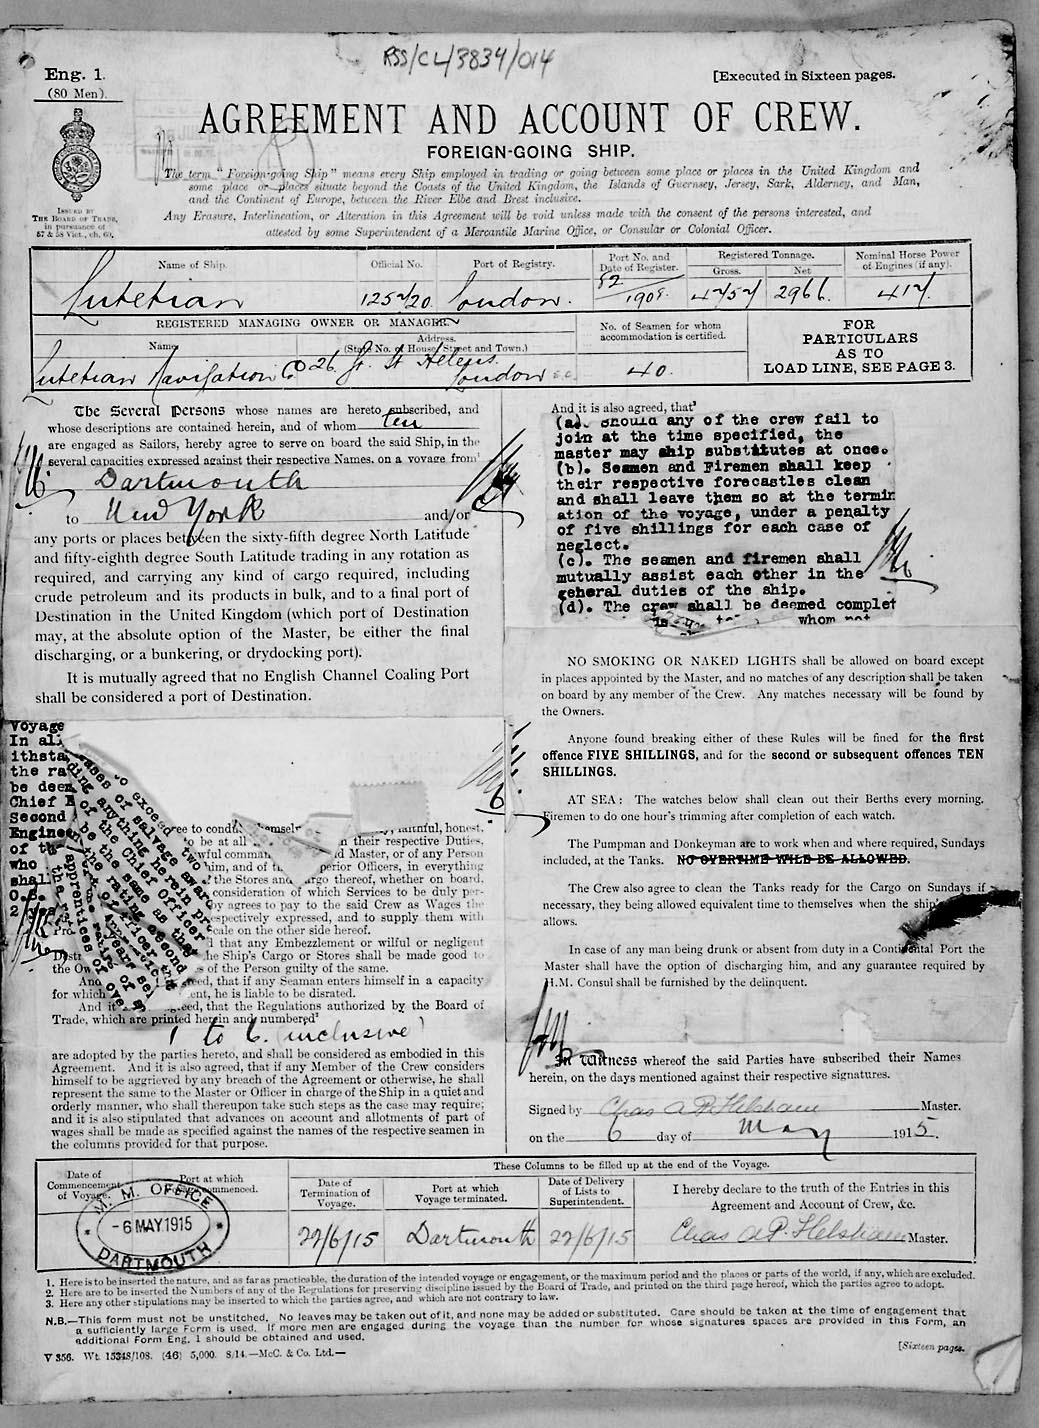 RSS/CL/3834/014
Eng. 1.
(80 Men).
[Executed in Sixteen pages.
AGREEMENT AND ACCOUNT OF CREW.
FOREIGN-GOING SHIP.
ISSUED BY
THE BOARD OF TRADE,
in pursuance of
57 & 58 Vict., ch. 60.
The term "Foreign-going Ship" means every Ship employed in trading or going between some place or places in the United Kingdom and
some place or places situate beyond the Coasts of the United Kingdom, the Islands of Guernsey, Jersey, Sark, Alderney, and Man,
and the Continent of Europe, between the River Elbe and Brest inclusive.
Any Erasure, Interlineation, or Alteration in this Agreement will be void unless made with the consent of the persons interested, and
attested by some Superintendent of a Mercantile Marine Office, or Consular or Colonial Officer.
Name of Ship. Official No. Port of Registry. Port No. and Date of Register. Registered Tonnage. Gross. Net Nominal Horse Power of Engines (if any).
Lutetian 125720 London. 52/1908. 4757 2966. 417.
REGISTERED MANAGING OWNER OR MANAGER
Name Address. (State No. of House, Street and Town.)
Lutetian Navigation Co 26. Gt. St Helens. London E.C.
No. of Seamen for whom
accommodation is certified.
40.
FOR
PARTICULARS
AS TO
LOAD LINE, SEE PAGE 3.
The Several Persons whose names are hereto subscribed, and
whose descriptions are contained herein, and of whom ten
are engaged as Sailors, hereby agree to serve on board the said Ship, in the
several capacities expressed against their respective Names, on a voyage from¹
Dartmouth
to New York and/or
any ports or places between the sixty-fifth degree North Latitude
and fifty-eighth degree South Latitude trading in any rotation as
required, and carrying any kind of cargo required, including
crude petroleum and its products in bulk, and to a final port of
Destination in the United Kingdom (which port of Destination
may, at the absolute option of the Master, be either the final
discharging, or a bunkering, or drydocking port).
It is mutually agreed that no English Channel Coaling Port
shall be considered a port of Destination.
Voyage
In all
ithsta
the ra
be deem
Chief
Second
Enginee
of th
who
shall
O.S.
to exceed two
ases of salvage award
ding anything herein pr
of the Chief Officer
be the same as that
the rating second
apprentices of over
ree to conduct themselves faithful, honest,
to be at all n their respective Duties,
wful comman d Master, or of any Person
him, and of th perior Officers, in everything
the Stores and argo thereof, whether on board,
consideration of which Services to be duly per-
by agrees to pay to the said Crew as Wages the
espectively expressed, and to supply them with
Pro cale on the other side hereof.
d that any Embezzlement or wilful or negligent
Destr he Ship's Cargo or Stores shall be made good to
the Ow s of the Person guilty of the same.
And reed, that if any Seaman enters himself in a capacity
for which ent, he is liable to be disrated.
And it eed, that the Regulations authorized by the Board of
Trade, which are printed herein and numbered²
1 to 6. inclusive
are adopted by the parties hereto, and shall be considered as embodied in this
Agreement. And it is also agreed, that if any Member of the Crew considers
himself to be aggrieved by any breach of the Agreement or otherwise, he shall
represent the same to the Master or Officer in charge of the Ship in a quiet and
orderly manner, who shall thereupon take such steps as the case may require;
and it is also stipulated that advances on account and allotments of part of
wages shall be made as specified against the names of the respective seamen in
the columns provided for that purpose.
And it is also agreed, that³
(a). should any of the crew fail to
join at the time specified, the
master may ship substitutes at once.
(b). Seamen and Firemen shall keep
their respective forecastles clean
and shall leave them so at the termin
ation of the voyage, under a penalty
of five shillings for each case of
neglect.
(c). The seamen and firemen shall
mutually assist each other in the
geheral duties of the ship.
(d). The crew shall be deemed complet
whom not
NO SMOKING OR NAKED LIGHTS shall be allowed on board except
in places appointed by the Master, and no matches of any description shall be taken
on board by any member of the Crew. Any matches necessary will be found by
the Owners.
Anyone found breaking either of these Rules will be fined for the first
offence FIVE SHILLINGS, and for the second or subsequent offences TEN
SHILLINGS.
AT SEA: The watches below shall clean out their Berths every morning.
Firemen to do one hour's trimming after completion of each watch.
The Pumpman and Donkeyman are to work when and where required, Sundays
included, at the Tanks. NO OVERTIME WILL BE ALLOWED.
The Crew also agree to clean the Tanks ready for the Cargo on Sundays if
necessary, they being allowed equivalent time to themselves when the ship's
allows.
In case of any man being drunk or absent from duty in a Continental Port the
Master shall have the option of discharging him, and any guarantee required by
H.M. Consul shall be furnished by the delinquent.
In Witness whereof the said Parties have subscribed their Names
herein, on the days mentioned against their respective signatures.
Signed by Chas A P. Helsham Master.
on the 6 day of May 1915.
Date of Commencement of Voyage. Port at which commenced.
M. M. OFFICE
-6 MAY 1915
DARTMOUTH
These Columns to be filled up at the end of the Voyage.
Date of Termination of Voyage. Port at which Voyage terminated. Date of Delivery of Lists to Superintendent.
22/6/15 Dartmouth 22/6/15
I hereby declare to the truth of the Entries in this
Agreement and Account of Crew, &c.
Chas A P. Helsham Master.
1. Here is to be inserted the nature, and as far as practicable, the duration of the intended voyage or engagement, or the maximum period and the places or parts of the world, if any, which are excluded.
2. Here are to be inserted the Numbers of any of the Regulations for preserving discipline issued by the Board of Trade, and printed on the third page hereof, which the parties agree to adopt.
3. Here any other stipulations may be inserted to which the parties agree, and which are not contrary to law.
N.B.—This form must not be unstitched. No leaves may be taken out of it, and none may be added or substituted. Care should be taken at the time of engagement that
a sufficiently large Form is used. If more men are engaged during the voyage than the number for whose signatures spaces are provided in this Form, an
additional Form Eng. 1 should be obtained and used.
V 356. Wt. 15348/108. (46) 5,000. 8/14.—McC. & Co. Ltd.—
[Sixteen pages.